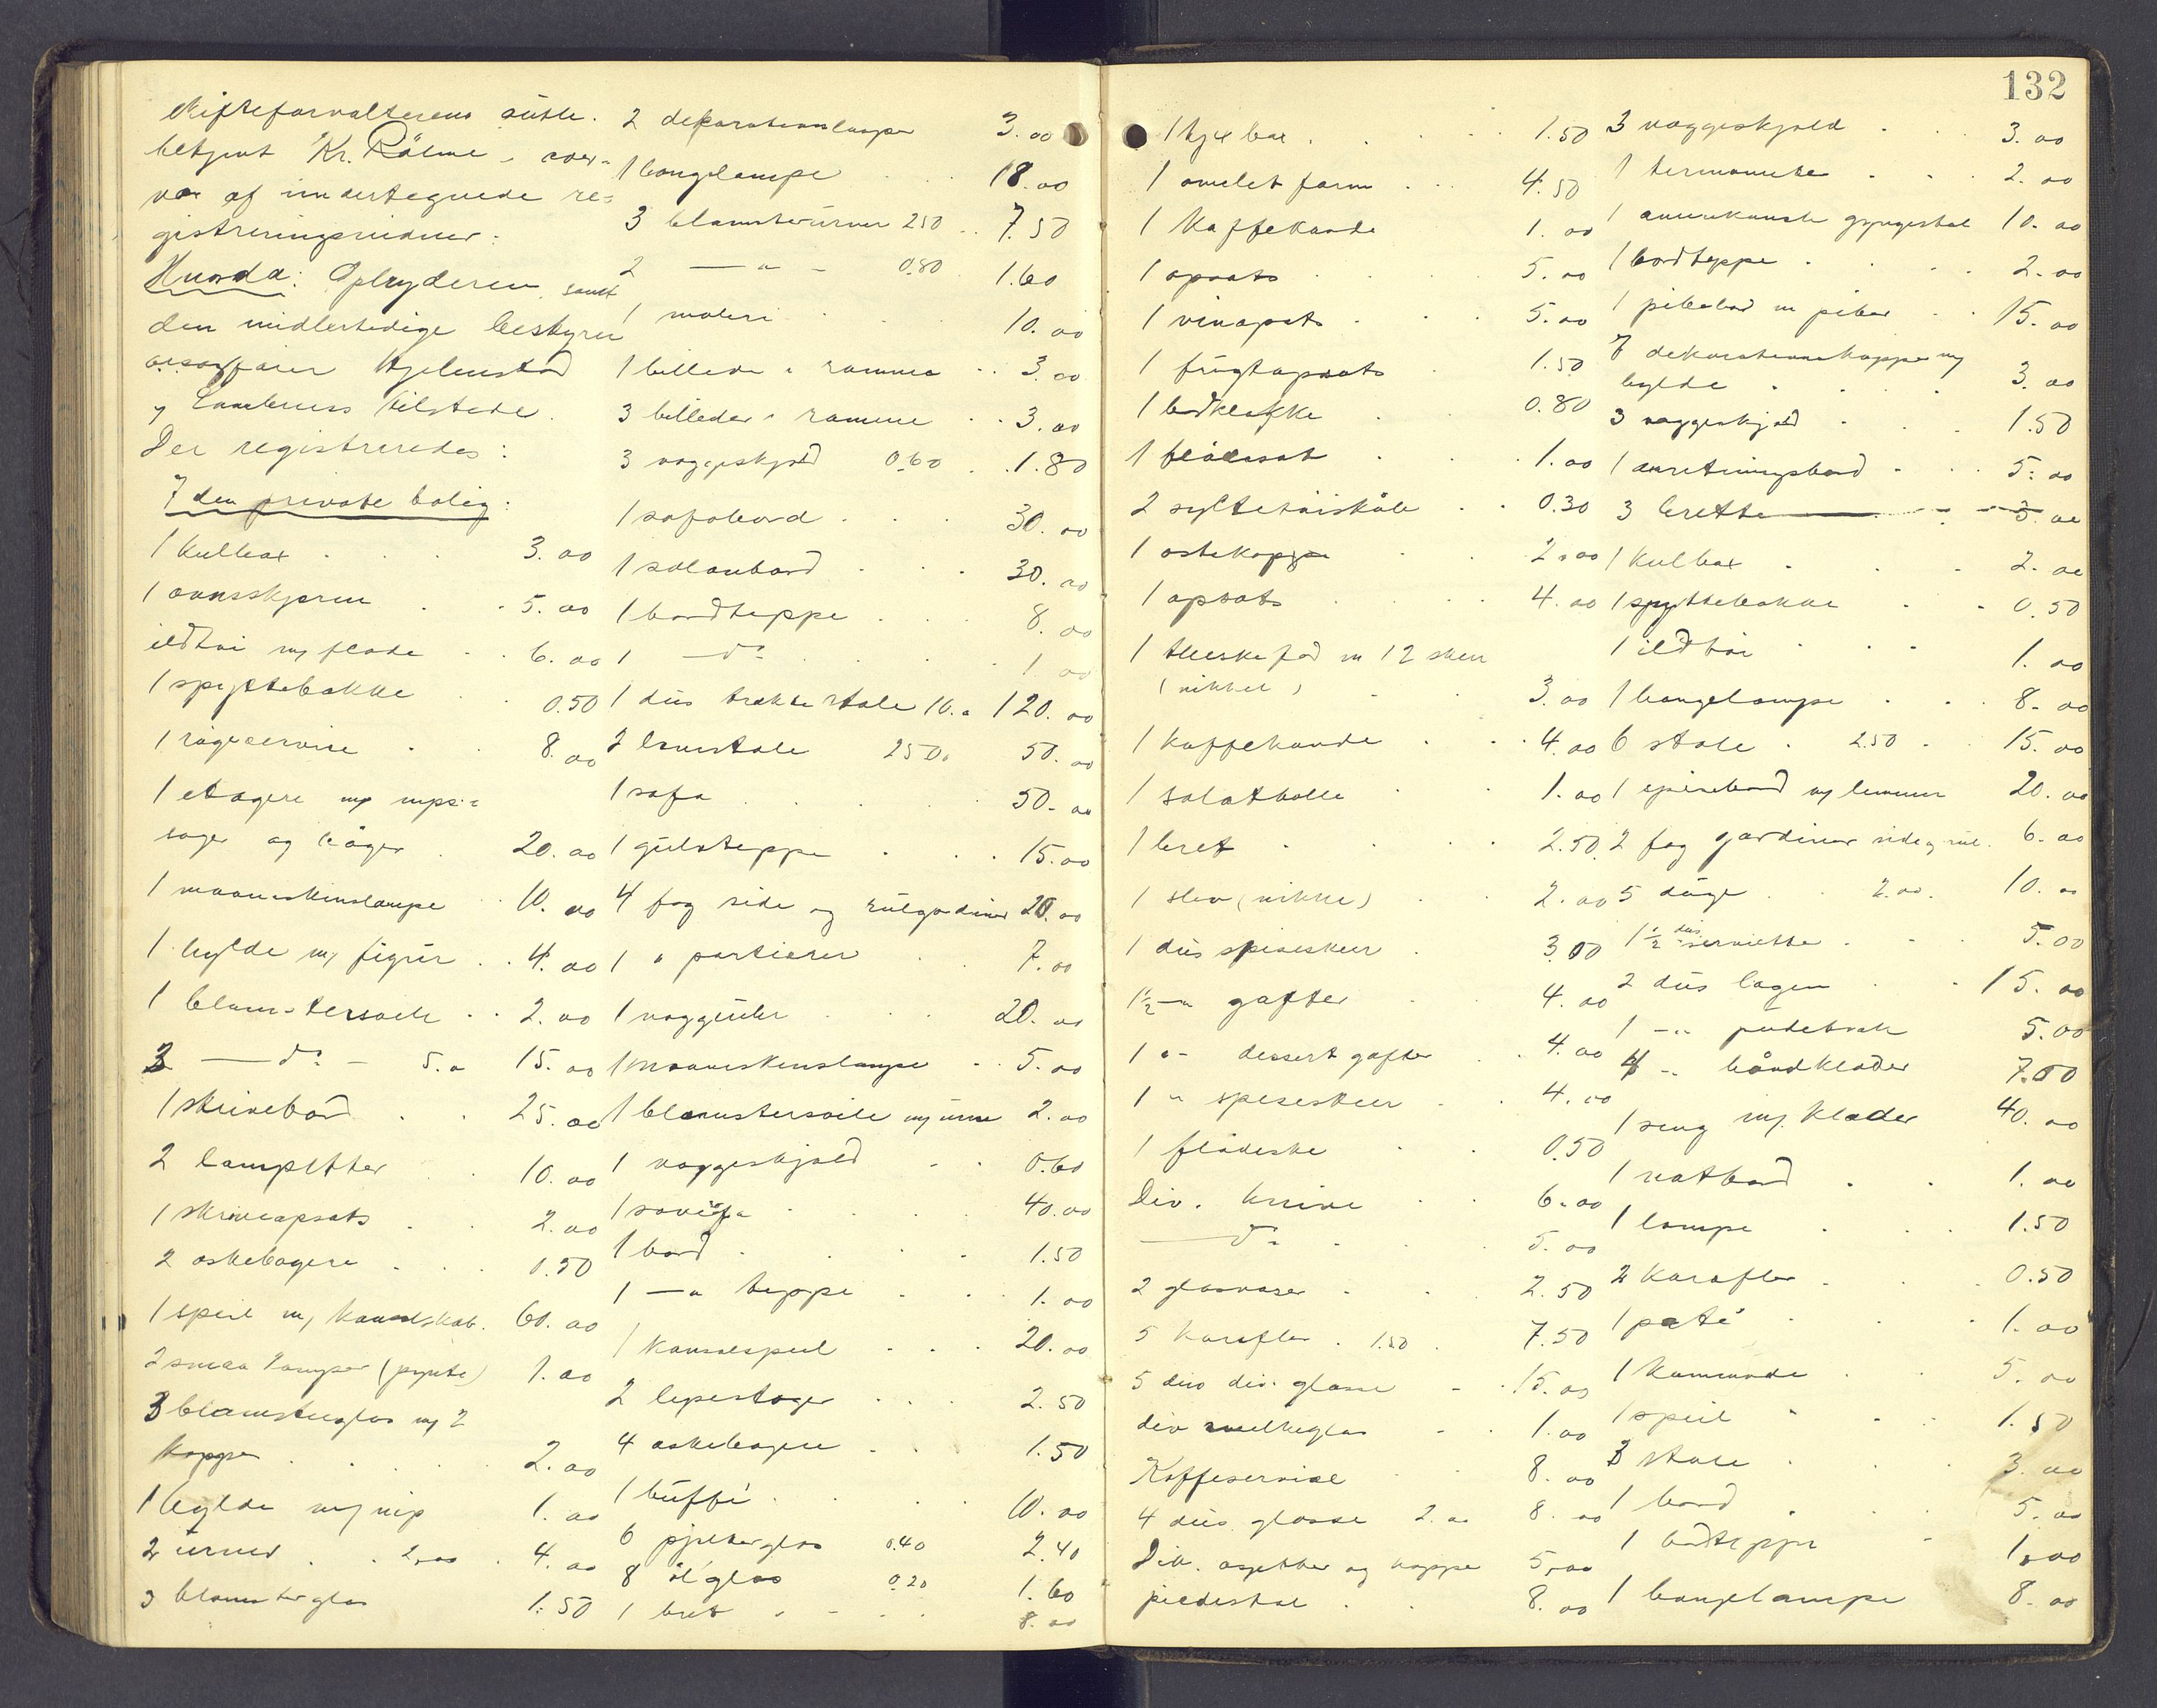 skifteforvalterens
betjent Kr. Rølme, over-
vær af undertegnede re-
gistreringsvidner:
Hvorda: Opbryderen samt
den midlertidige bestyrer
Hjelmstad
tilstede.
Der registreredes:
I den private bolig:
1 kulbox . . . 3.00
1 ovnsskjerm . . 5.00
ildtøi m/ fløde . . 6.00
1 spyttebakke . . 0.50
1 røgeservise . . 8.00
1 etagere m/ nips-
sager og bøger . 20.00
1 maaneskinslampe . 10.00
1 hylde m/ figur . . 4.00
1 blomstersøile . . 2.00
3 — do — 5.00 15.00
1 skrivebord . . 25.00
2 lampetter . . 10.00
1 skriveopsats . . 2.00
2 askebægere . . . 0.50
1 speil m/ konsolskab. 60.00
2 smaa lamper (pynte) 1.00
3 blomsterglas m/ 2
kopper . . . . 2.00
1 hylde m/ nip 1.00
2 urner . . 2,00 . 4.00
3 blomsterglas 1.50
2 dekorationslamper 3.00
1 hengelampe . . . 18.00
3 blomsterurner 250 . . 7.50
2 — " — 0.80 1.60
1 maleri . . . 10.00
1 billede i ramme . . 3.00
3 billeder i ramme . . 3.00
3 væggeskjold 0.60 . . 1.80
1 sofabord . . . 30.00
1 salonbord . . . 30.00
1 bordteppe . . . 8.00
1 — do . . . . 1.00
1 dus trækte stole 10.00 120.00
2 lænstole 250. 50.00
1 sofa . . . . 50.00
1 gulvteppe . . . 15.00
4 fag side og rulgardiner 20.00
1 " portierer . . 7.00
1 væggeur . . . 20.00
1 maaneskinslampe . . 5.00
1 blomstersøile m/ urne 2.00
1 væggeskjold . . 0.60
1 40.00
1 bord . . . . 1.50
1 — " teppe . . . 1.00
1 konsolspeil . . . 20.00
2 lysestager . . . 2.50
4 askebægere . . . 1.50
1 büffé . . . . 10.00
6 pjolterglas 0.40 2.40
8 ølglas 0.20 1.60
1 bret . . . . 8.00
132
1 . . . . 1.50
1 omelet form . . . 4.50
1 Kaffekande 1.00
1 opsats . . . . 5.00
1 vinopsats . . . 5.00
1 frugtopsats . 1.50
1 bordklokke . 0.80
1 flødesat . . . 1.00
2 syltetøiskåle . . 0.30
1 ostekoppe . . 2.00
1 opsats . . . . 4.00
1 theskefad m 12 skeer
(nikkel) . . 3.00
1 kaffekande . . . 4.00
1 salatbolle . . 1.00
1 bret . . . . 2.50
1 slev (nikkel) . . 2.00
1 dus spiseskeer . 3.00
1½ — " gafler . . 4.00
1 " — dessert gafler . . 4.00
1 " spiseskeer . . 4.00
1 flødeske . . 0.50
Div. knive . . 6.00
— do . . . 5.00
2 glasvaser . . 2.50
5 karafler . 1.50 . 7.50
5 dus div. glasse . . 15.00
div melkeglas . . 1.00
Kaffeservise . . 8.00
4 dus. glasse 2.00 8.00
Div. asjetter og kopper 5,00
piedestal . . . 8.00
3 væggeskjold . . . 3.00
1 termometer . . . 2.00
1 amerikansk gyngestol 10.00
1 bordteppe . . . 2.00
1 pibebord m piber . . 15.00
7 dekorationskopper m/
hylde . . . . 3.00
3 væggeskjold . . . 1.50
1 anretningsbord . . . 5.00
3 brette . . . 3.00
1 kulbox . . . 2.00
1 spyttebakke . . 0.50
1 ildtøi . . . 1.00
1 hengelampe . . . 8.00
6 stole . 2.50 . . 15.00
1 spisebord m/ lemmer 20.00
2 fag gardiner side og rul. 6.00
5 duge . . 2.00. 10.00
1½ dus servietter . . . 5.00
2 dus lagen . . . 15.00
1 — " pudetræk 5.00
4 — " håndklæder 7.00
1 seng m/ klæder 40.00
1 natbord . . 1.00
1 lampe . . . 1.50
2 karafler . . . 0.50
1 . . . 1.00
1 kommode . . 5.00
1 speil . . . 1.50
3 stole . . . 3.00
1 bord . . . 5.00
1 bordteppe . 1.00
1 hengelampe 8.00